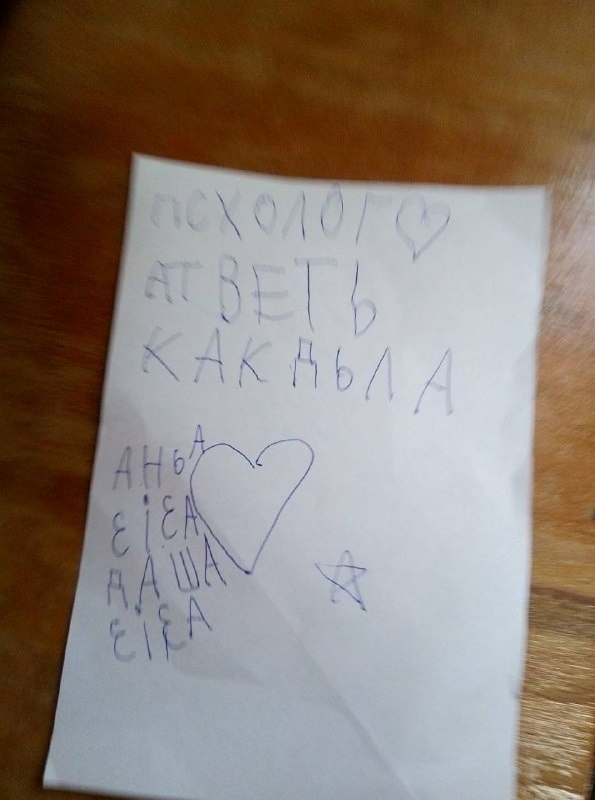 ПСХОЛОГ
АТВЕТЬ
КАК ДЬЛА
АНЬА
ЕІЕА
ДАША
ЕІЕА